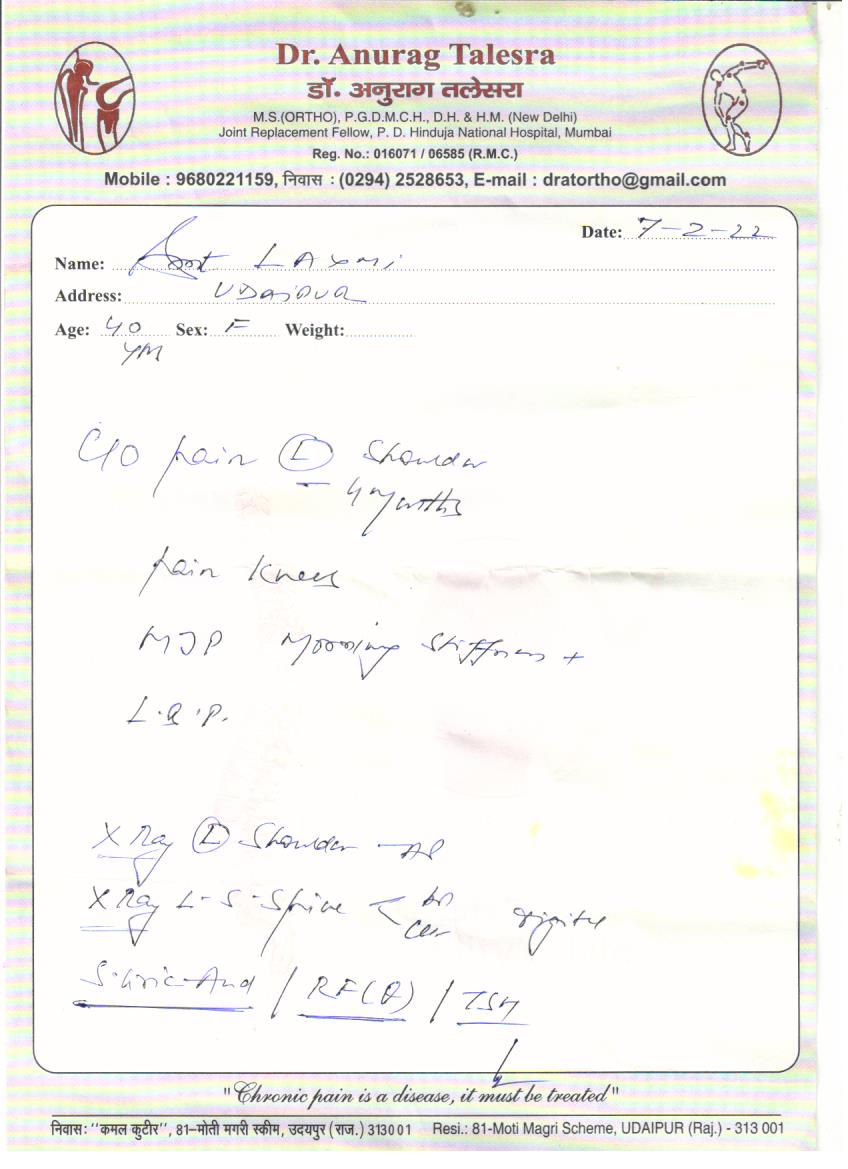 Dr. Anurag Talesra
डॉ. अनुराग तलेसरा
M.S.(ORTHO), P.G.D.M.C.H., D.H. & H.M. (New Delhi)
Joint Replacement Fellow, P. D. Hinduja National Hospital, Mumbai
Reg. No.: 016071 / 06585 (R.M.C.)
Mobile : 9680221159, निवास : (0294) 2528653, E-mail : dratortho@gmail.com
Date: 7-2-22
Name: Smt LAXmi
Address: UDaipur
Age: 40 Sex: F Weight:
C/O pain (L) Shoulder
4 Months
pain Knees
MJP Morning Stiffness +
L.B.P.
X Ray (L) Shoulder - AP
X Ray L-S-Spine < AP
S. Uric Acid / RF(Q) / TSH
"Chronic pain is a disease, it must be treated"
निवास: ''कमल कुटीर'', 81–मोती मगरी स्कीम, उदयपुर (राज.) 313001 Resi.: 81-Moti Magri Scheme, UDAIPUR (Raj.) - 313 001